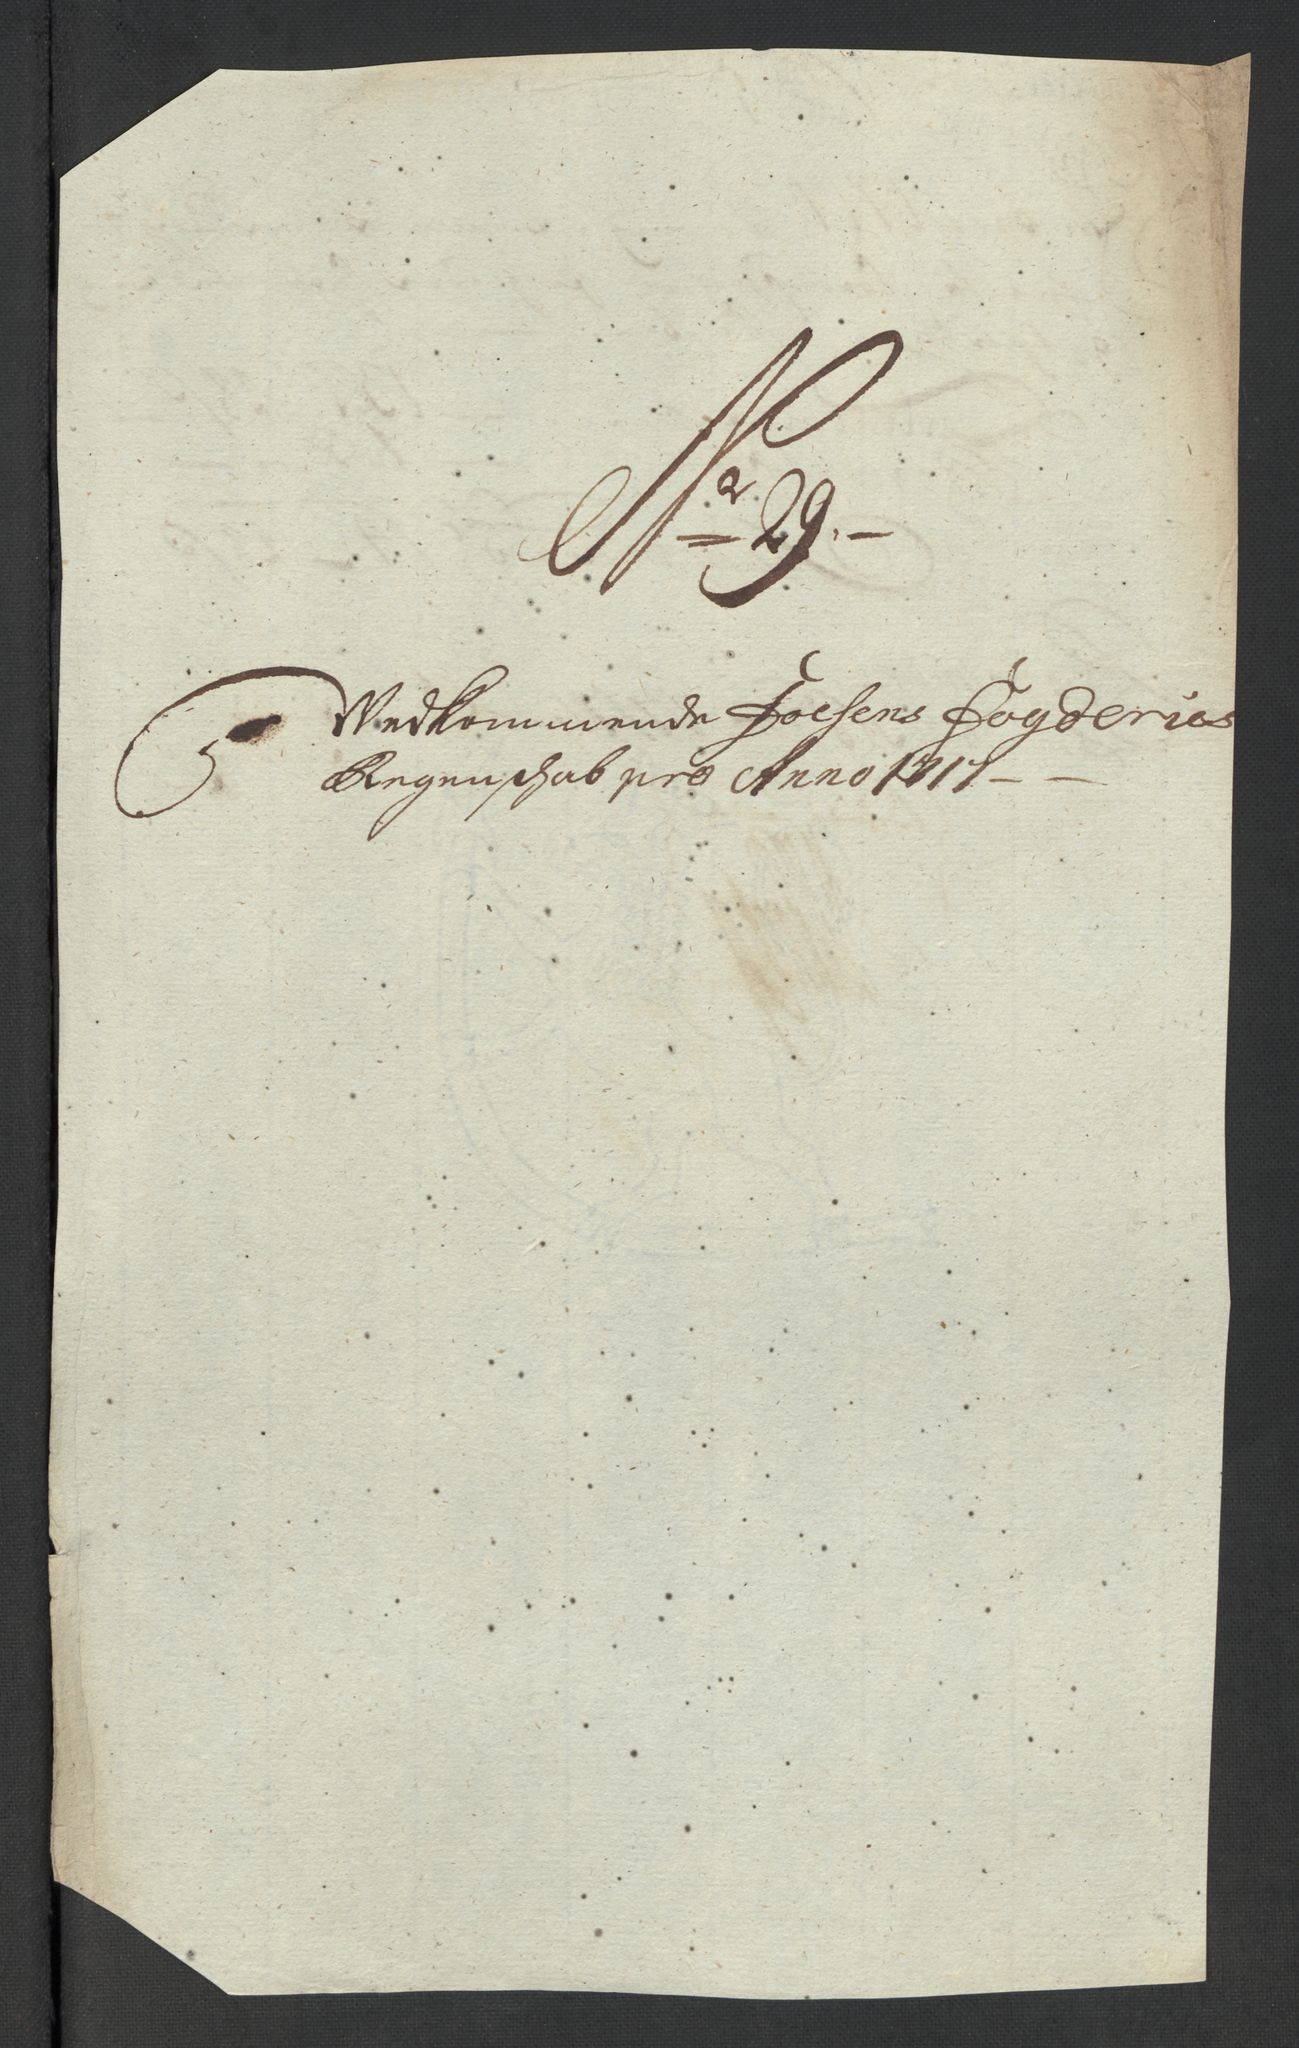 No 29.-
Vedkommende Foesens Fogderies
Regenschab pro Anno 1717 - -